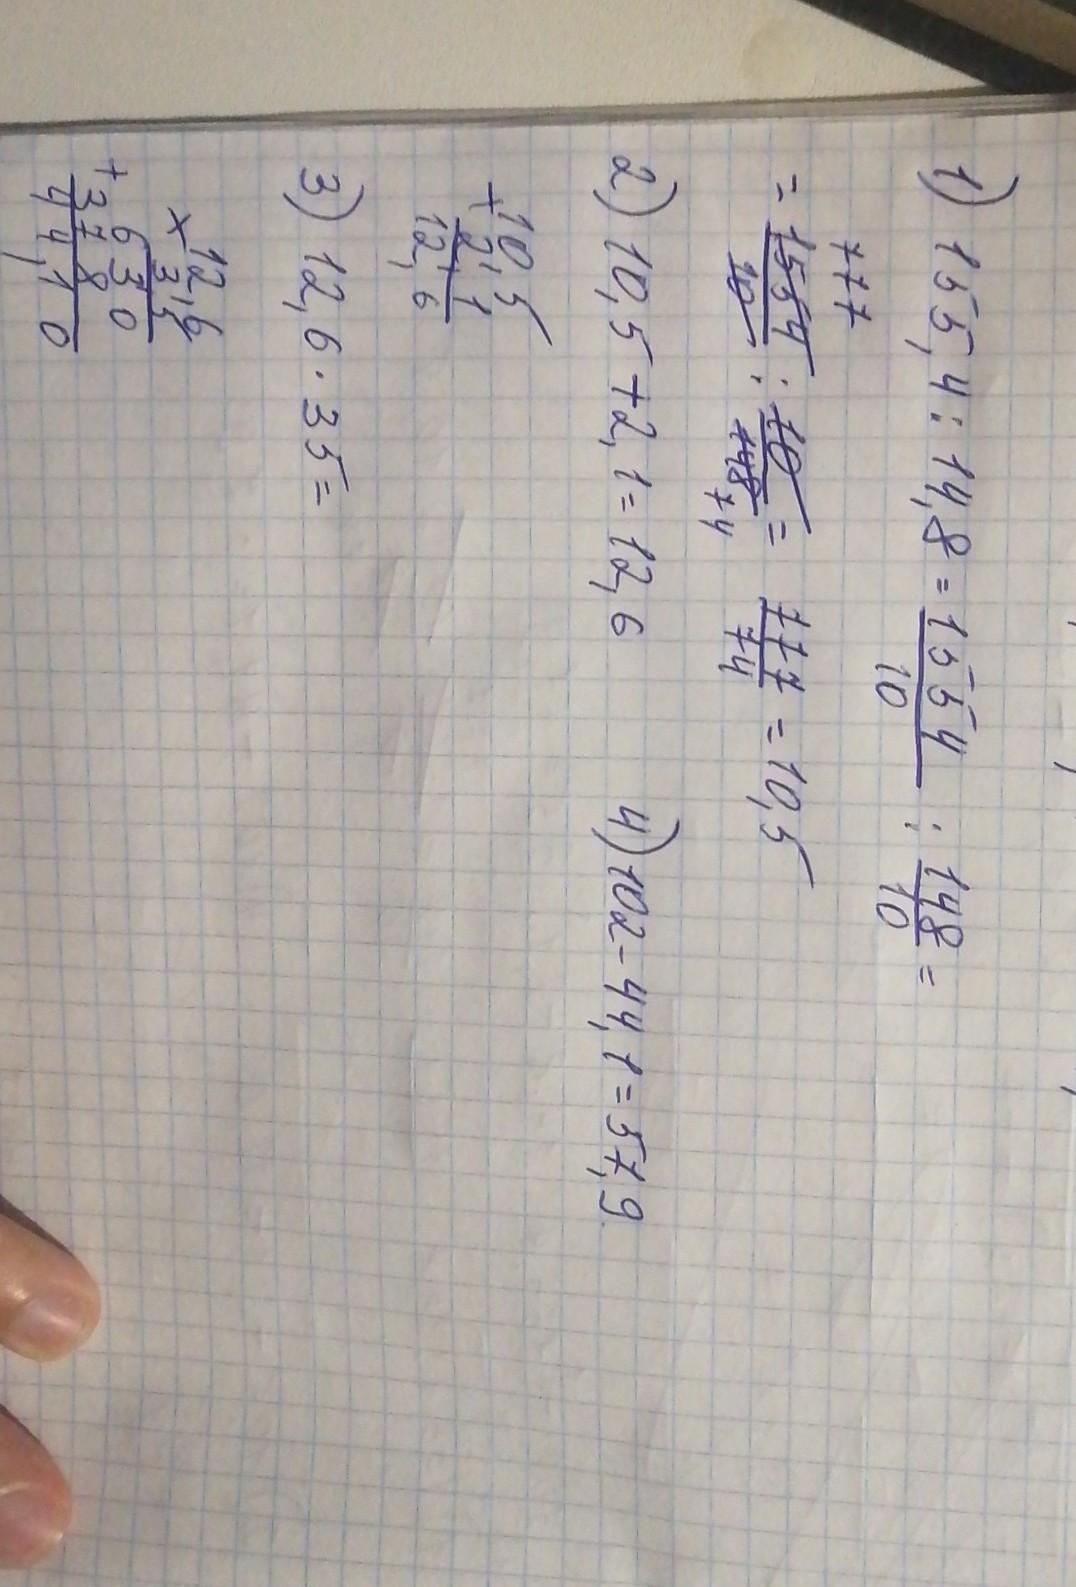 1) 155,4 : 14,8 = 1554/10 : 148/10 =
777
= 1554/10 : 10/148 = 777/74 = 10,5
74
2) 10,5 + 2,1 = 12,6
4) 102 - 44,1 = 57,9
10,5
+ 2,1
12,6
3) 12,6 · 35 =
× 12,6
35
630
+ 378
44,10